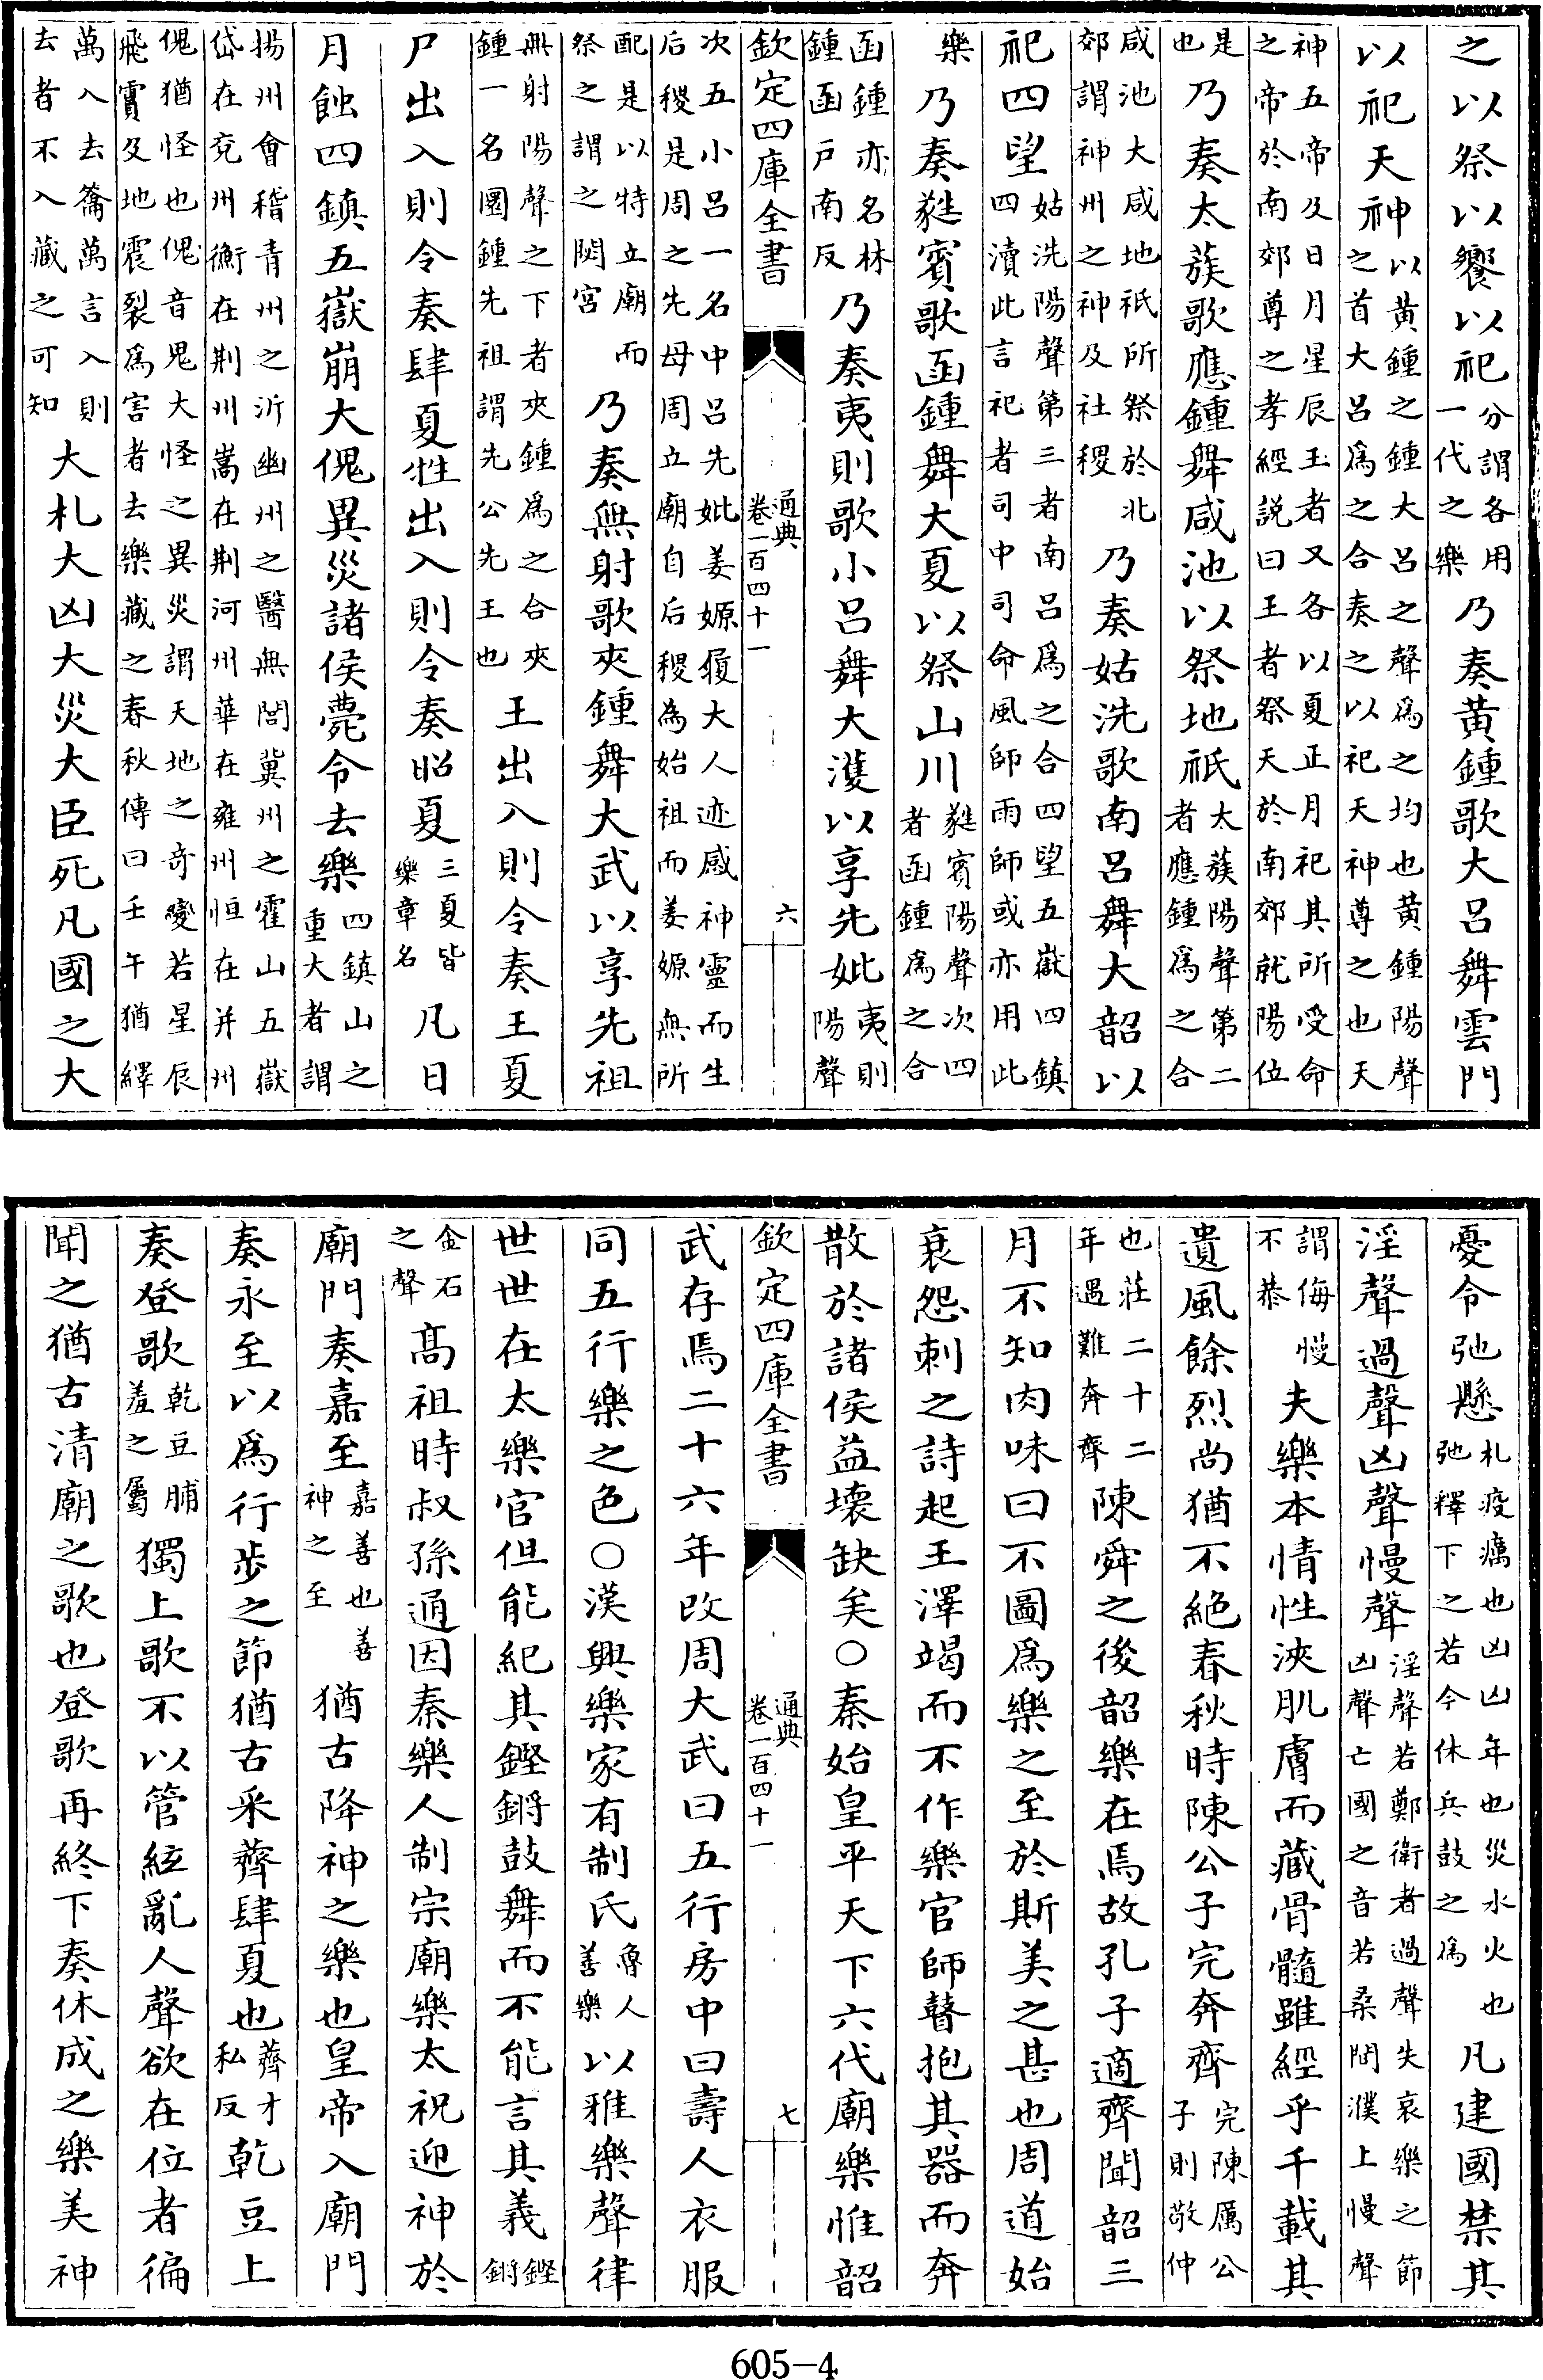 之以祭以饗以祀分謂各用一代之樂乃奏黄鍾歌大呂舞雲門
以祀天神以黄鍾之鍾大呂之聲爲之均也黄鍾陽聲之首大呂爲之合奏之以祀天神尊之也天
神五帝及日月星辰王者又各以夏正月祀其所受命之帝於南郊尊之孝經説曰王者祭天於南郊就陽位
是也乃奏太蔟歌應鍾舞咸池以祭地祇太蔟陽聲第二者應鍾爲之合
咸池大咸地祇所祭於北郊謂神州之神及社稷乃奏姑洗歌南呂舞大韶以
祀四望姑洗陽聲第三者南呂爲之合四望五嶽四鎮四瀆此言祀者司中司命風師雨師或亦用此
樂乃奏蕤賓歌函鍾舞大夏以祭山川蕤賓陽聲次四者函鍾爲之合
函鍾亦名林鍾函戸南反乃奏夷則歌小呂舞大濩以享先妣夷則陽聲
欽定四庫全書 通典卷一百四十一 六
次五小呂一名中呂先妣姜嫄履大人迹感神靈而生后稷是周之先母周立廟自后稷為始祖而姜嫄無所
配是以特立廟而祭之謂之閟宮乃奏無射歌夾鍾舞大武以享先祖
無射陽聲之下者夾鍾爲之合夾鍾一名圜鍾先祖謂先公先王也王出入則令奏王夏
尸出入則令奏肆夏牲出入則令奏昭夏三夏皆樂章名凡日
月蝕四鎮五嶽崩大傀異災諸侯薨令去樂四鎮山之重大者謂
揚州會稽青州之沂幽州之醫無閭冀州之霍山五嶽岱在兗州衡在荆州嵩在荆河州華在雍州恒在并州
傀猶怪也傀音鬼大怪之異災謂天地之奇變若星辰飛霣及地震裂爲害者去樂藏之春秋傳曰壬午猶繹
萬入去籥萬言入則去者不入藏之可知大札大凶大災大臣死凡國之大
憂令弛懸札疫癘也凶凶年也災水火也弛釋下之若今休兵鼓之爲凡建國禁其
淫聲過聲凶聲慢聲淫聲若鄭衛者過聲失哀樂之節凶聲亡國之音若桑間濮上慢聲
謂侮慢不恭夫樂本情性浹肌膚而藏骨髓雖經乎千載其
遺風餘烈尚猶不絕春秋時陳公子完奔齊完陳厲公子則敬仲
也莊二十二年遇難奔齊陳舜之後韶樂在焉故孔子適齊聞韶三
月不知肉味曰不圖爲樂之至於斯美之甚也周道始
衰怨刺之詩起王澤竭而不作樂官師瞽抱其器而奔
散於諸侯益壞缺矣○秦始皇平天下六代廟樂惟韶
欽定四庫全書 通典卷一百四十一 七
武存焉二十六年改周大武曰五行房中曰壽人衣服
同五行樂之色○漢興樂家有制氏魯人善樂以雅樂聲律
世世在太樂官但能紀其鏗鏘鼓舞而不能言其義鏗鏘
金石之聲高祖時叔孫通因秦樂人制宗廟樂太祝迎神於
廟門奏嘉至嘉善也善神之至猶古降神之樂也皇帝入廟門
奏永至以爲行步之節猶古采薺肆夏也薺才私反乾豆上
奏登歌乾豆脯羞之屬獨上歌不以管絃亂人聲欲在位者徧
聞之猶古清廟之歌也登歌再終下奏休成之樂美神
605-4